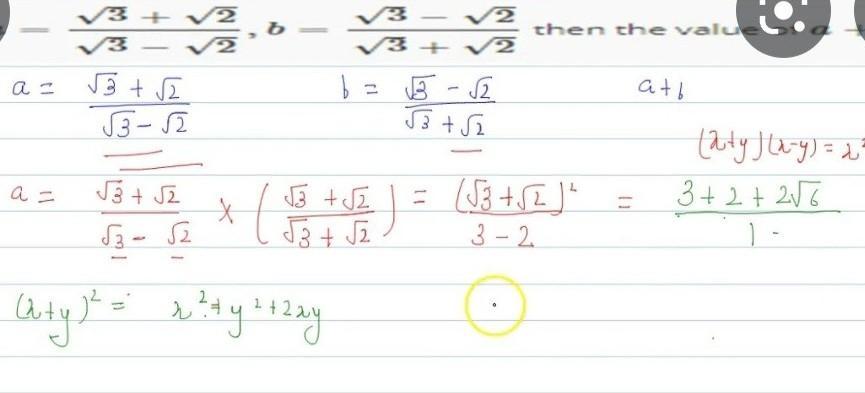 = √3 + √2 / √3 − √2 , b = √3 − √2 / √3 + √2 then the value of a +
a = √3 + √2 / √3 - √2 b = √3 - √2 / √3 + √2 a+b
(x+y)(x-y) = x²
a = √3 + √2 / √3 - √2 × ( √3 + √2 / √3 + √2 ) = (√3 + √2)² / 3 - 2 = 3 + 2 + 2√6 / 1
(x+y)² = x² + y² + 2xy